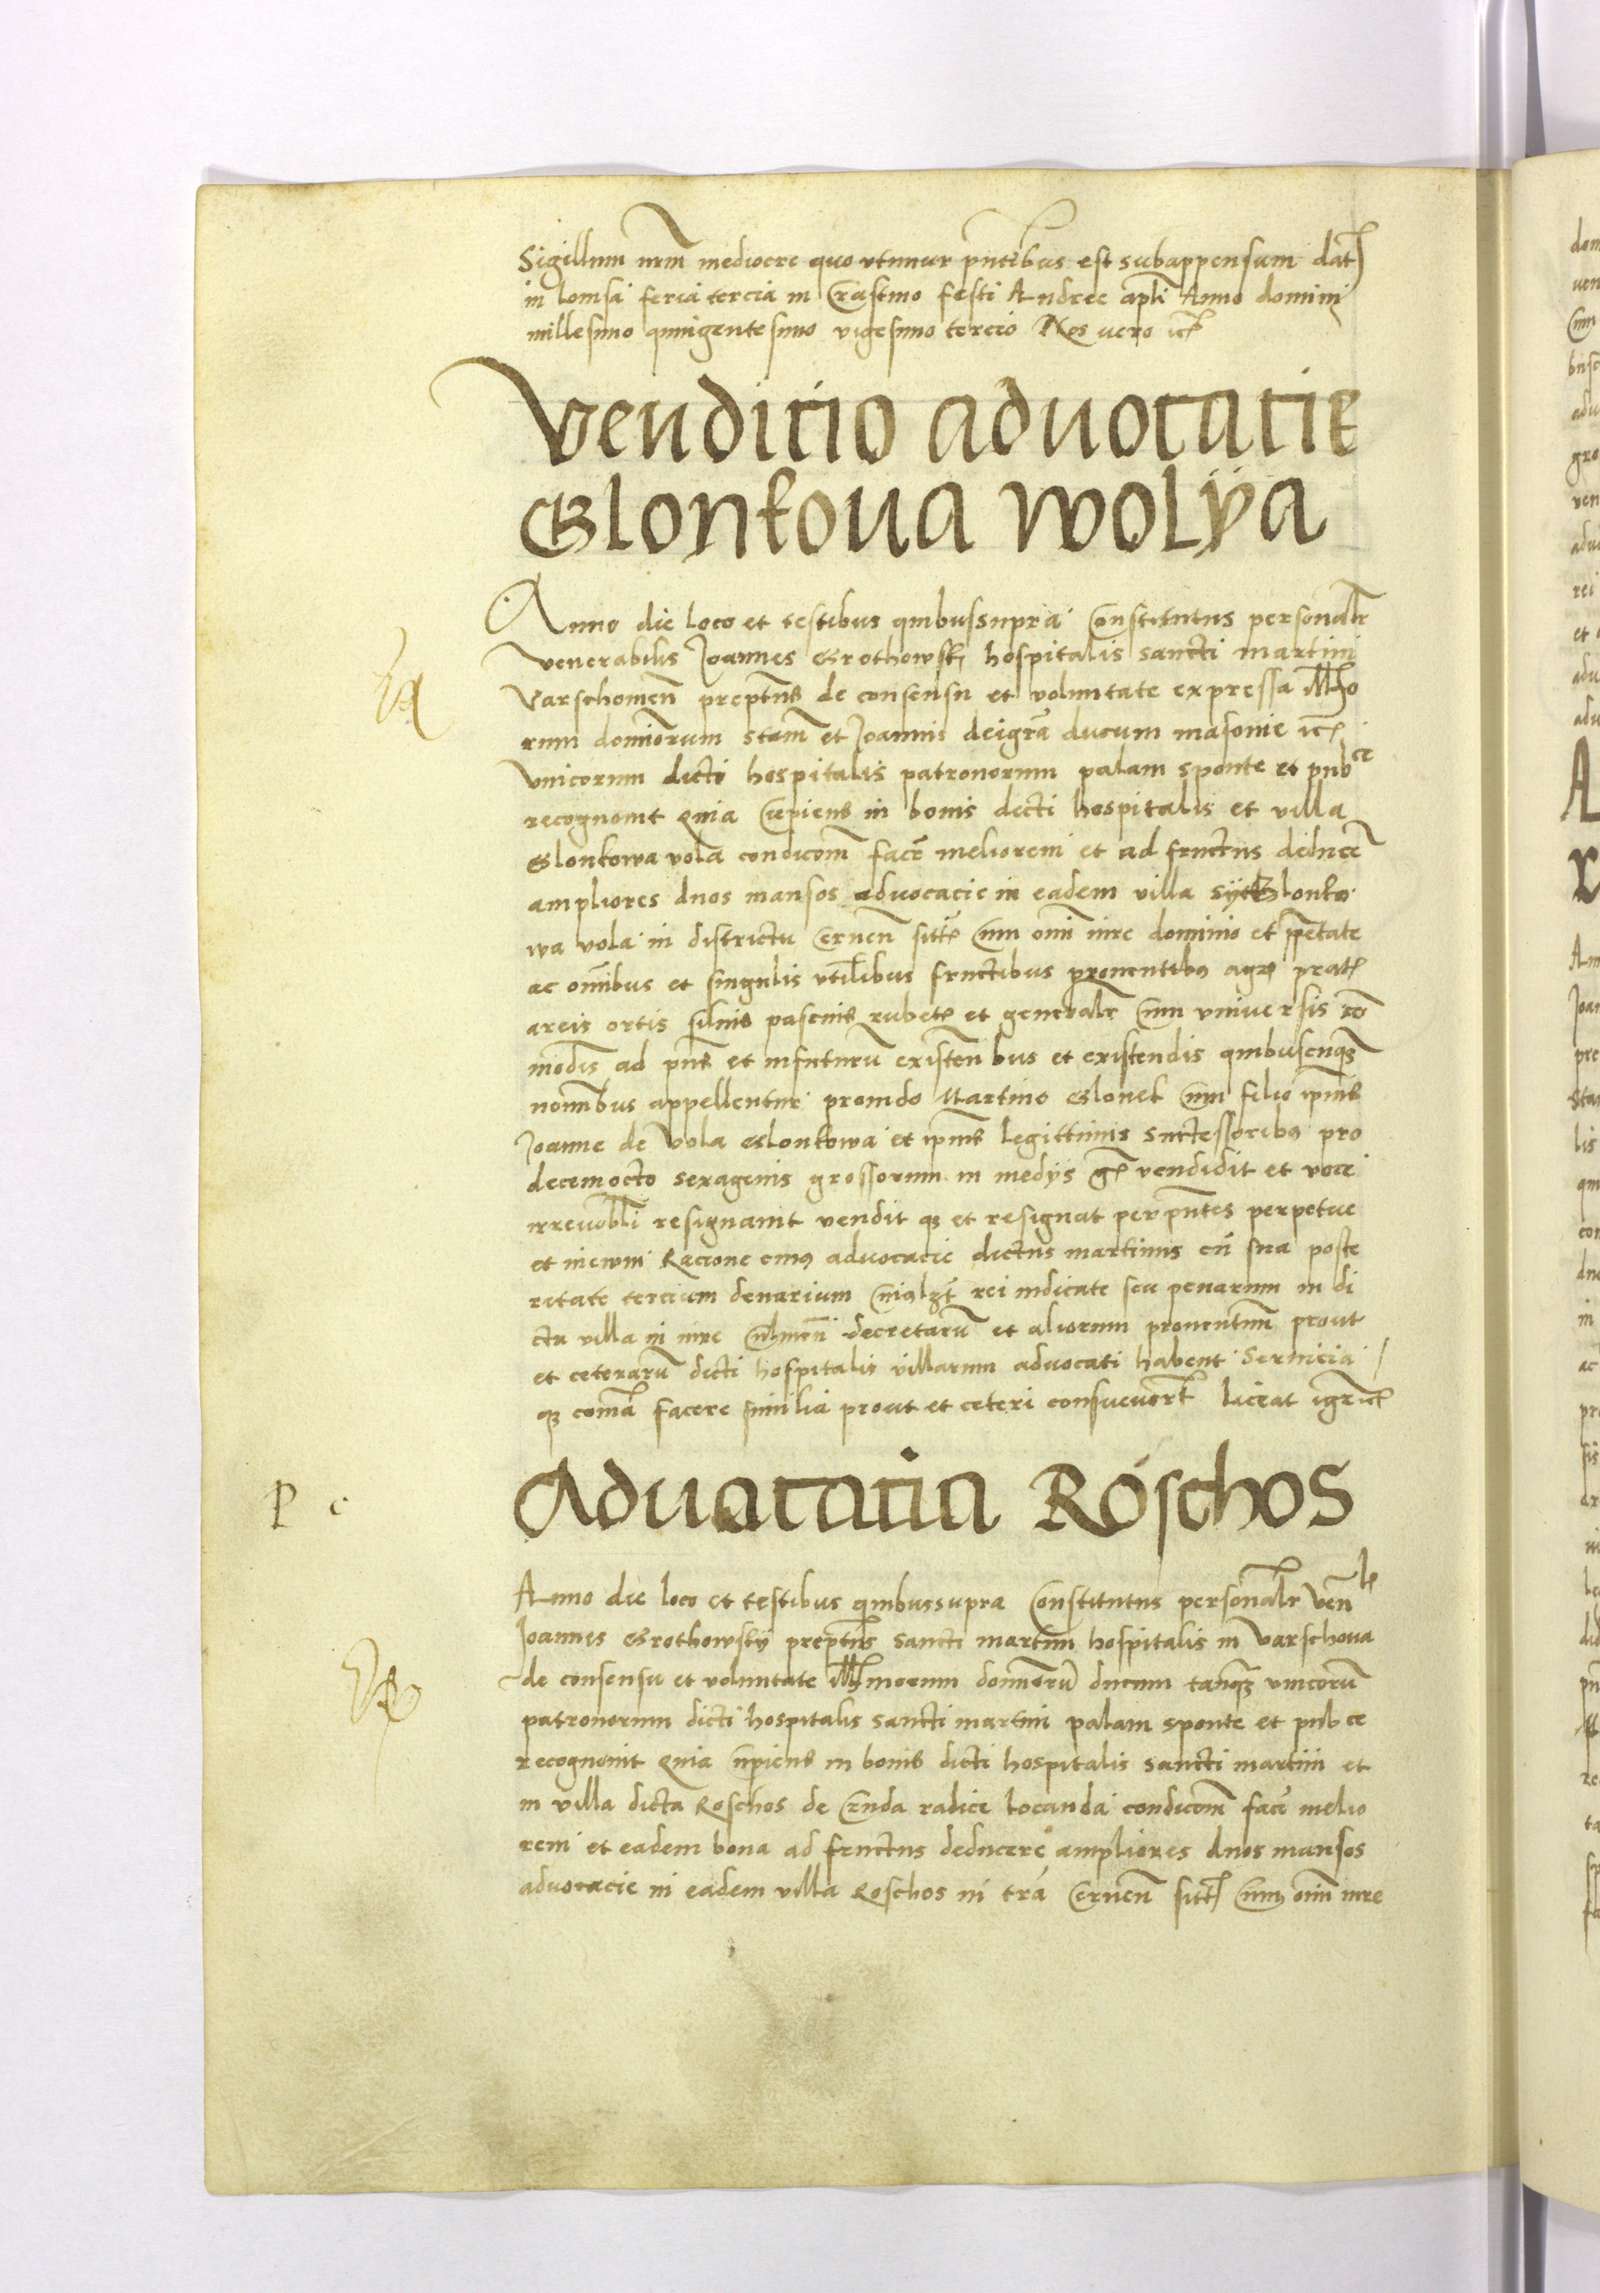 Sigillum nrm mediocre quo utimur pntibus est subappensum dat
in lomsa feria tercia in Crastino festi Andree apli Anno domini
millesimo quingentesimo vigesimo tercio Nos vero ict
Venditio advocatie
Glonkova Wolÿa
Anno die loco et testibus quibussupra Constitutus personalr
venerabilis Joannes Grothowsk hospitalis sancti martini
Varschouien preptus de consensu et voluntate expressa Illmo
rum dominorum Stam et Joannis deigra ducum masouie ict
unicorum dicti hospitalis patronorum palam sponte et pubce
recognouit Quia cupiens in bonis dicti hospitalis et villa
Glonkowa vola condicom face meliorem et ad fructus deduce
ampliores duos mansos advocacie in eadem villa Glonko
wa vola in districtu Cernen sitt Cum omi iure dominio et ppetate
ac omibus et singulis utilibus fructibus prouentibus agr prat
areis ortis siluis pascuis rubet et generalr Cum universis co
modis ad pns et infuturu existen bus et existendis quibuscumq
nomibus appellentur prouido Martino Glonek Cum filio ipius
Joanne de Vola Glonkowa et ipius legittimis successoribus pro
decemocto sexagenis grossorum in medys gr vendidit et voce
irrevobli resignauit vendit q et resignat per pntes perpetue
et ineum Racione cuius advocacie dictus martinus cu sua poste
ritate tercium denarium rei iudicate seu penarum in di
cta villa in iure Culmen decretaru et aliorum prouentuum prout
et ceteraru dicti hospitalis villarum advocati habent Seruicia
q coma facere similia prout et ceteri consueuert liceat igr ict
Advocatia Róschos
P c
Anno die loco et testibus quibussupra Constitutus personalr Venle
Joannes Grothowsky preptus Sancti martini hospitalis in Varschoua
de consensu et voluntate Illmorum dominoru ducum tanq unicoru
patronorum dicti hospitalis Sancti martini palam sponte et pub ce
recognouit Quia cupiens in bonis dicti hospitalis Sancti martini et
in villa dicta Roschos de Cruda radice locanda condicom face melio
rem et eadem bona ad fructus deducere ampliores duos mansos
advocacie in eadem villa Roschos in tra Cernen sitt Cum omi iure